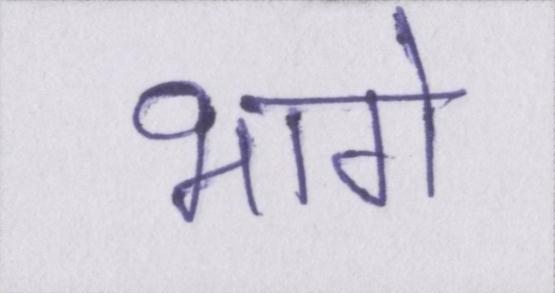 भागे